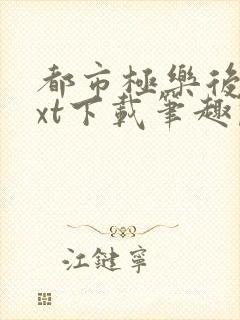 都市極樂後
xt下載筆趣
江鍵寧